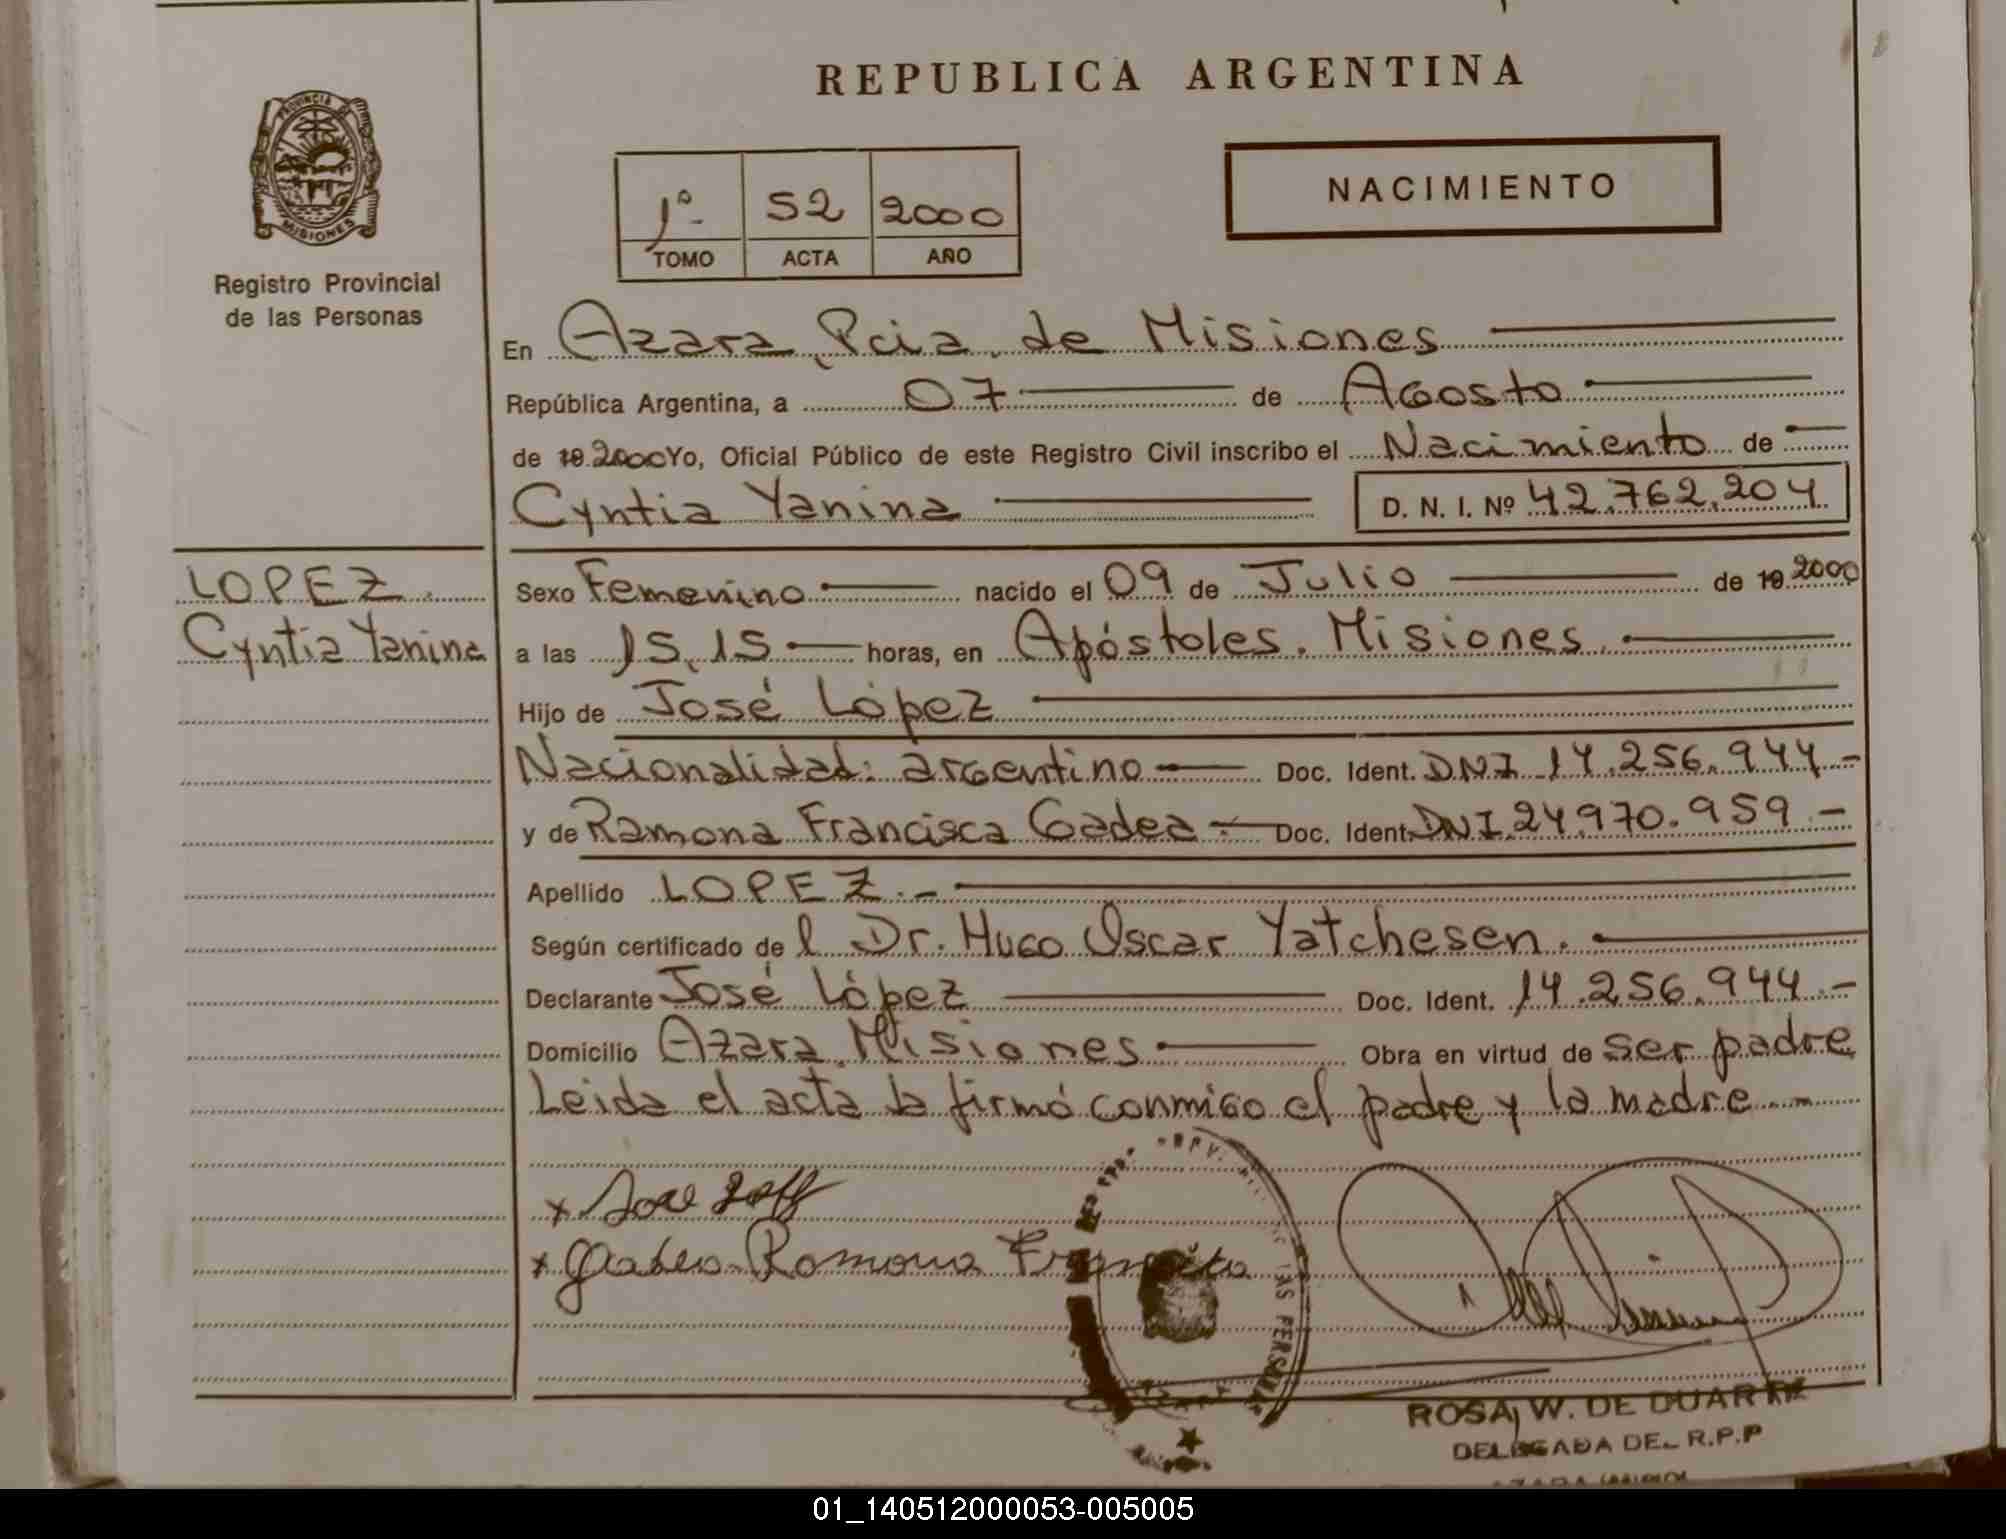 REPUBLICA ARGENTINA
PROVINCIA DE
MISIONES
Registro Provincial
de las Personas
1º- 52 2000
TOMO ACTA AÑO
NACIMIENTO
En Azara, Pcia. de Misiones
República Argentina, a 07 de Agosto
de 19 2000 Yo, Oficial Público de este Registro Civil inscribo el Nacimiento de
Cyntia Yanina D. N. I. Nº 42.762.204
LOPEZ.
Cyntia Yanina
Sexo Femenino nacido el 09 de Julio de 19 2000
a las 15,15 horas, en Apóstoles. Misiones.
Hijo de José López
Nacionalidad: argentino Doc. Ident. DNI 14.256.944.-
y de Ramona Francisca Gadea.- Doc. Ident. DNI 24.970.959.-
Apellido LOPEZ.-
Según certificado del Dr. Hugo Oscar Yatchesen.
Declarante José López Doc. Ident. 14.256.944.-
Domicilio Azara. Misiones Obra en virtud de ser padre
Leida el acta la firmó conmigo el padre y la madre.-
x Jose
x Ramona
LAS PERSONAS
ROSA W. DE DUARTE
DELEGADA DEL R.P.P
01_140512000053-005005